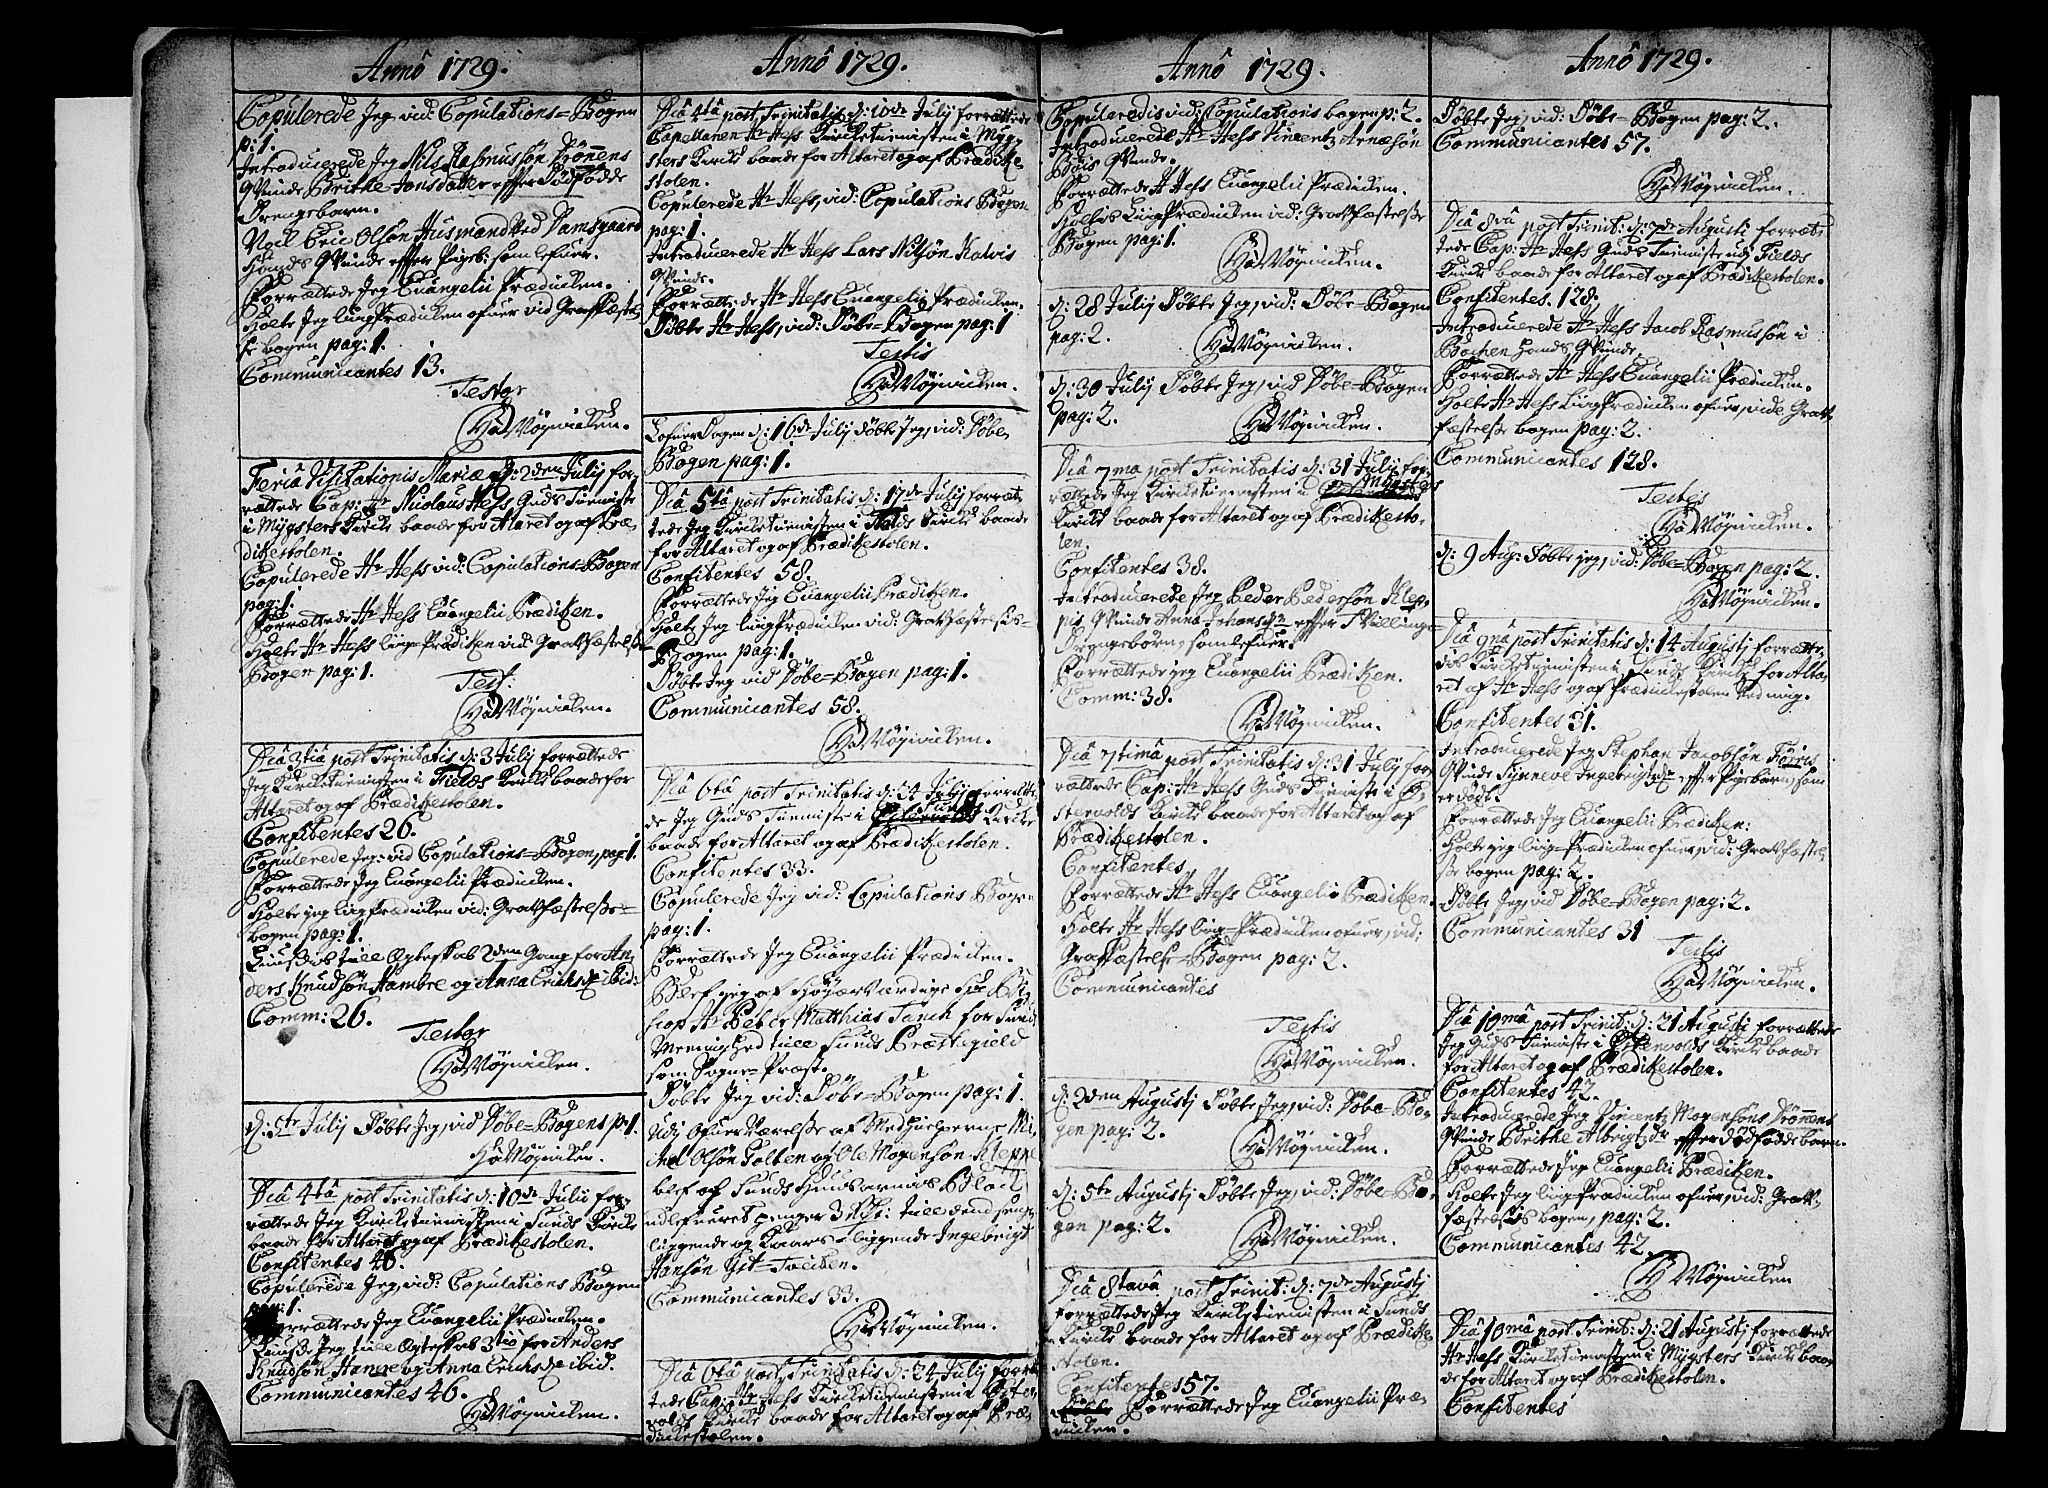 Anno 1729.
Copulerede Jeg vid: Copulations-Bogen
p: 1.
Introducerede Jeg Nils Rasmussøn Drönens
Qvinde Brithe Jonsdatter effter Dødfödde
Drengebarn.
Noch Eric Olsøn Huusmand Ved Damsgaard
Hands Qvinde effter Pigeb: som lefuer.
Forrættede Jeg Euangelii Prædicken.
Holte Jeg liigPrædicken ofuer vid Graffæstel,
se bogen pag: 1.
Communicantes 13.
Testor
HaMöÿnicken.
Feria Visitationis Mariæ d: 2den Julij for,
rættede Cap: Hr Nicolaus Hess Guds Tienniste
i Mÿgsters Kircke baade for Altaret og af Præ,
dickestolen.
Copulerede Hr Hess vid: Copulations-Bogen
pag: 1.
Forrættede Hr Hess Euangelii Prædicken.
Holte Hr Hess liig-Prædicken vid Graffæstelse
Bogen pag: 1.
Test:
HaMöÿnicken.
Diâ 3tiâ post Trinitatis d: 3 Julij forrættede
Jeg Kircketiennisten i Fields Kircke baade for
Altaret og af Prædickestolen.
Confitentes 26.
Copulerede Jeg: vid Copulations-Bogen, pag: 1.
Forrættede Jeg Euangelii Prædicken.
Holte jeg liigPrædicken vid: Graffæstelsse-
bogen pag: 1.
Liuste till Ægteskab 2den Gang for An,
ders Knudsøn Hambre og Anna Erichsdr ibid:
Comm: 26.
Testor
HaMöÿnicken.
d: 5te Julij Döbte Jeg, vid Döbe-Bogens p: 1.
HaMöÿnicken.
Diâ 4tâ post Trinitatis d: 10de Julii for,
rættede Jeg Kircketiennisten i Sunds Kircke
baade for Altaret og af Prædickestolen.
Confitentes 46.
Copulerede Jeg, vid: Copulations Bogen
pag: 1.
Forrættede Jeg Euangelii Prædicken.
Liuste Jeg till Ægteskab 3tio for Anders
Knudsøn Hamre og Anna Erichsdr ibid.
Communicantes 46.
HaMöÿnicken.
Anno 1729.
Diâ 4tâ post Trinitatis d: 10de Julij forrættede
Capellanen Hr Hess Kircketiennisten i Mÿg,
sters Kircke baade for Altaret og af Prædicke
stolen.
Copulerede Hr Hess, vid: Copulations Bogen
pag: 1.
Introducerede Hr Hess Lars Nilsøn Kalvis
Qvinde.
Forrættede Hr Hess Euangelii Prædicken.
Döbte Hr Hess, vid: Döbe-Bogen pag: 1
Testis
HaMöÿnicken.
Lofuerdagen d: 16de Julij döbte Jeg, vid: Döbe,
Bogen pag: 1.
Diâ 5tâ post Trinitatis d: 17de Julij forræt,
tede Jeg Kircketiennisten i Fields Kircke baade
for Altaret og af Prædickestolen.
Confitentes 58.
Forrættede Jeg Euangelii Prædicken.
Holte Jeg liigPrædicken vid: Graffæstelsis-
Bogen pag: 1.
Döbte Jeg vid Döbe-Bogen pag: 1.
Communicantes 58.
HaMöÿnicken.
Diâ 6tâ post Trinitatis d: 24 Julij forrætte,
de Jeg Guds Tienniste i Sunds Kircke
baade for Altaret og af Prædickestolen.
Confitentes 33.
Copulerede Jeg vid: Copulations Bogen
pag: 1.
Forrættede Jeg Euangelii Prædicken.
Blef jeg af HöyærVærdige Hr Bi,
scop Hr Peder Matthias Tanch for Sunds
Meenighed till Sunds Præstegield
som Sogne-Præst.
Döbte Jeg vid: Döbe-Bogen pag: 1.
Udj Ofuerværelse af Medhielperne Mi,
chel Olsøn Tolten og Ole Mogensøn Kleppe
blef af Sunds Huusarmis Block
udlefueret penger 3 till dend senge,
liggende og Kaars-liggende Ingebrigt
Hansøn Yst-Tveiten.
Communicantes 33.
HaMöÿnicken.
Diâ 6tâ post Trinitatis d: 24 Julij forræt,
tede Cap: Hr Hess Kircketiennisten i Öster,
volds Kircke baade for Altaret og af Præ,
dickestolen.
Anno 1729.
Copuleredis vid: Copulationis bogen p: 2.
Introducerede Hr Hess Vincentz Arnesøn
Böis Qvinde.
Forrættede Hr Hess Euangelii Prædicken.
Holtis LiigPrædicken vid: Graffæstelsse
Bogen pag: 1.
HaMöÿnicken.
d: 28 Julij Döbte Jeg, vid: Döbe-Bogen
pag: 2.
HaMöÿnicken.
d: 30 Julij Döbte Jeg, vid Döbe-Bogen
pag: 2.
HaMöÿnicken.
Diâ 7ma post Trinitatis d: 31 Julij for,
rættede Jeg Kircketiennisten i Mÿgsters
Kircke baade for Altaret og af Prædickesto,
len.
Confitentes 38.
Introducerede Jeg Peder Pedersøn Klep,
pis Qvinde Anna Johansdr effter Tvillinge
Drengebörn, som lefuer.
Forrættede jeg Euangelii Prædicken.
Comm: 38.
HaMöÿnicken.
Diâ 7timâ post Trinitatis d: 31 Julij for,
rættede Cap: Hr Hess Guds Tienniste i Ö,
stervolds Kircke baade for Altaret og af
Prædickestolen.
Confitentes
Forrættede Hr Hess Euangelii Prædicken.
Holte Hr Hess liig-Prædicken ofuer, vid:
Graffæstelse-Bogen pag: 2.
Communicantes
Testis
HaMöÿnicken.
d: 2den Augustj Döbte Jeg, vid: Döbe-Bo,
gen pag: 2.
HaMöÿnicken.
d: 5te Augustj Döbte Jeg, vid: Döbe-Bo,
gen pag: 2.
HaMöÿnicken.
Diâ 8tavâ post Trinit: d: 7de Augustj
forrættede Jeg Kircketiennisten i Sunds
Kircke baade for Altaret og af Prædicke,
stolen.
Confitentes 57.
Forrættede Jeg Euangelii Præ,
dicken.
Anno 1729.
Döbte Jeg, vid: Döbe-Bogen pag: 2.
Communicantes 57.
HaMöÿnicken.
Diâ 8vâ post Trinit: d: 7de Augusti forræt,
tede Cap: Hr Hess Guds Tienniste udj Fields
Kircke baade for Altaret og af Prædickestolen.
Confitentes. 128.
Introducerede Hr Hess Jacob Rasmussøn i
Bachen Hands Qvinde.
Forrættede Hr Hess Euangelii Prædicken.
Holte Hr Hess LiigPrædicken ofuer, vide Graf,
fæstelsse bogen pag: 2.
Communicantes 128.
Testis
HaMöÿnicken.
d: 9 Aug: Döbte jeg, vid: Döbe-Bogen pag: 2.
HaMöÿnicken.
Diâ 9nâ post Trinitatis d: 14 Augustj forrætte,
dis Kircketiennisten i Sunds Kircke for Alta,
ret af Hr Hess og af Prædickestolen Ved mig.
Confitentes 31.
Introducerede Jeg Stephan Jacobsøn Förris
Qvinde Synneve Ingebrigtsdr effter Pigebarn, som
er dödt.
Forrættede Jeg Euangelii Prædicken:
Holte jeg liig-Prædicken ofuer, vid: Graffæstel,
sse bogen pag: 2.
Döbte Jeg, vid Döbe-Bogen pag: 2.
Communicantes 31
Testis
HaMöÿnicken.
Diâ 10mâ post Trinit: d: 21 Augusti forrættede
Jeg Guds Tienniste i Östervolds Kircke baade
for Altaret og af Prædickestolen.
Confitentes 42.
Introducerede Jeg Vincentz Mogensøns Drönens
Qvinde Brithe Albrigtzdr effter dödfödde barn.
Forrættede Jeg Euangelii Prædicken.
Holte Jeg liig-Prædicken ofuer, vid: Graf,
fæstelsis bogen, pag: 2.
Communicantes 42.
HaMöÿnicken
Diâ 10mâ post Trinit: d: 21 Augustj forrættede
Hr Hess Kircketiennisten i Mÿgsters Kircke baa,
de for Altaret og af Prædickestolen.
Confitentes